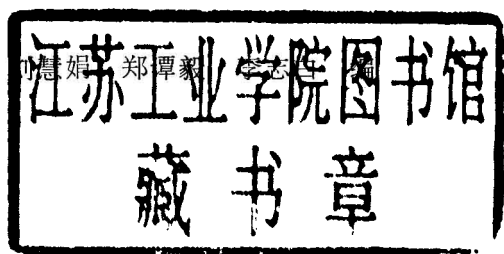 慧娟 郑谭毅 李志 编
江苏工业学院图书馆
藏书章